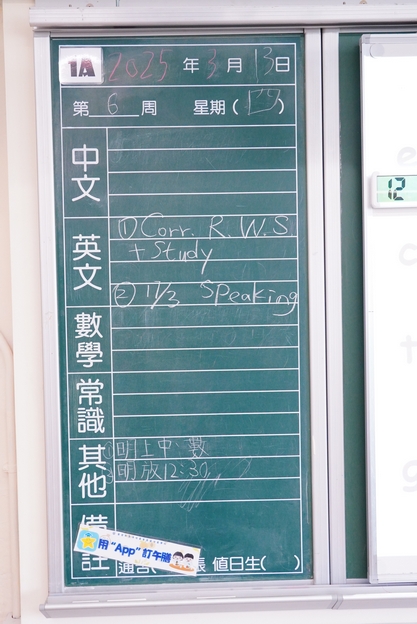 1A 2025 年 3 月 13 日
第 6 周 星期 (四)
中文
英文
① Corr. R.W.S
+ Study
② 17/3 Speaking
數學
常識
其他
① 明上中、數
② 明放12:30
備註
用“App”訂午膳
通告( 張 值日生( )
12